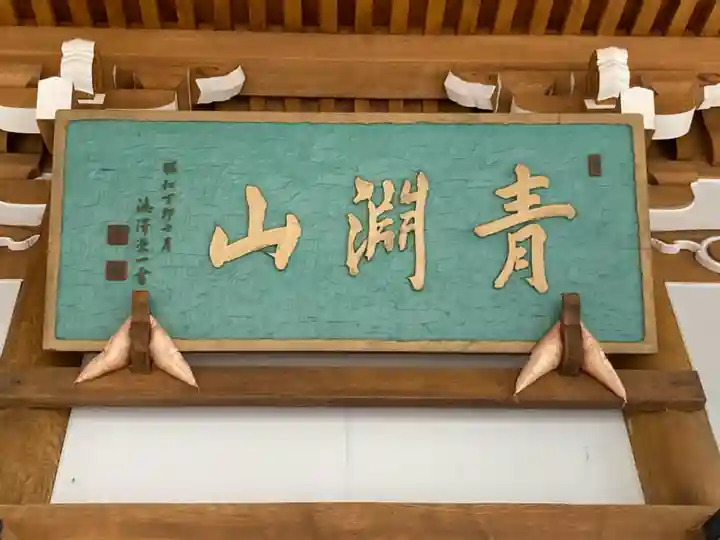 青淵山
昭和丁卯七月
澁澤榮一書